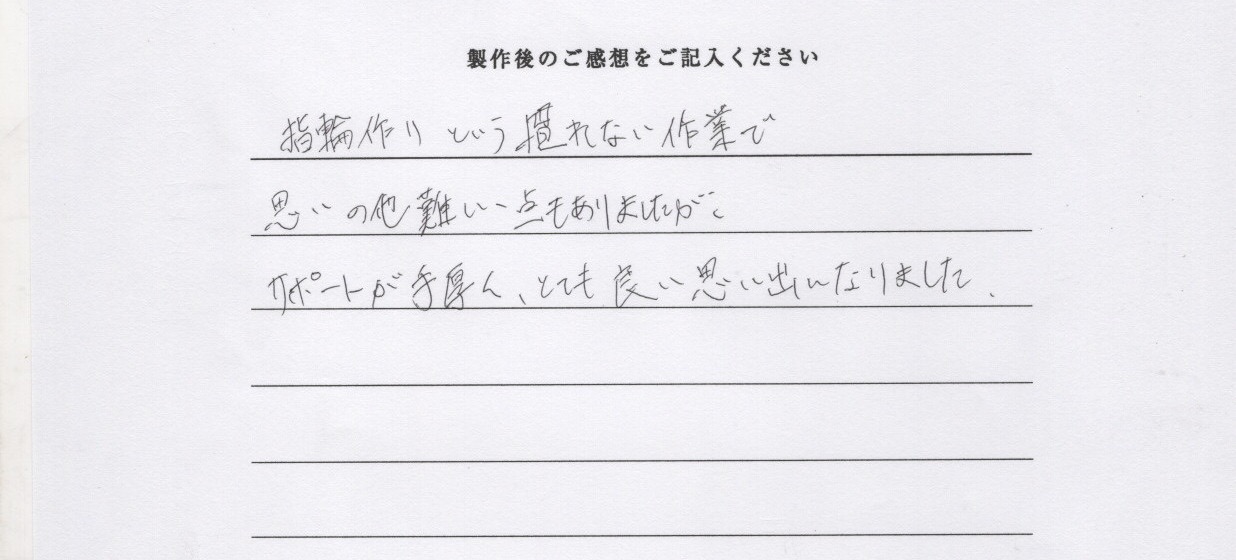 製作後のご感想をご記入ください
指輪作りという慣れない作業で
思いの他難しい点もありましたが、
サポートが手厚く、とても良い思い出になりました、